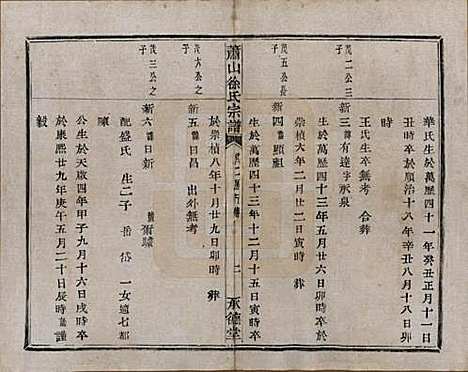 華氏生於萬歷四十一年癸丑正月十一日
丑時卒於順治十八年辛丑八月十八日卯
時
王氏生卒無考 合葬
茂二公三子
新三 諱有達字永泉
生於萬歷四十三年五月廿六日卯時卒於
崇禎六年二月廿二日寅時 葬
茂五公長子
新四 諱顯組
生於萬歷四十三年十二月十五日寅時卒
蕭山徐氏宗譜
二
承德堂
於崇禎八年十月廿九日卯時 葬
新五 諱日昌 出外無考
茂六公之子
新六 諱日新 號
配盛氏 生二子 岳 岱 一女適七都
陳
茂三公之子
公生於天啟四年甲子九月十六日戌時卒
於康熙廿九年庚午五月二十日辰時 謹
毅